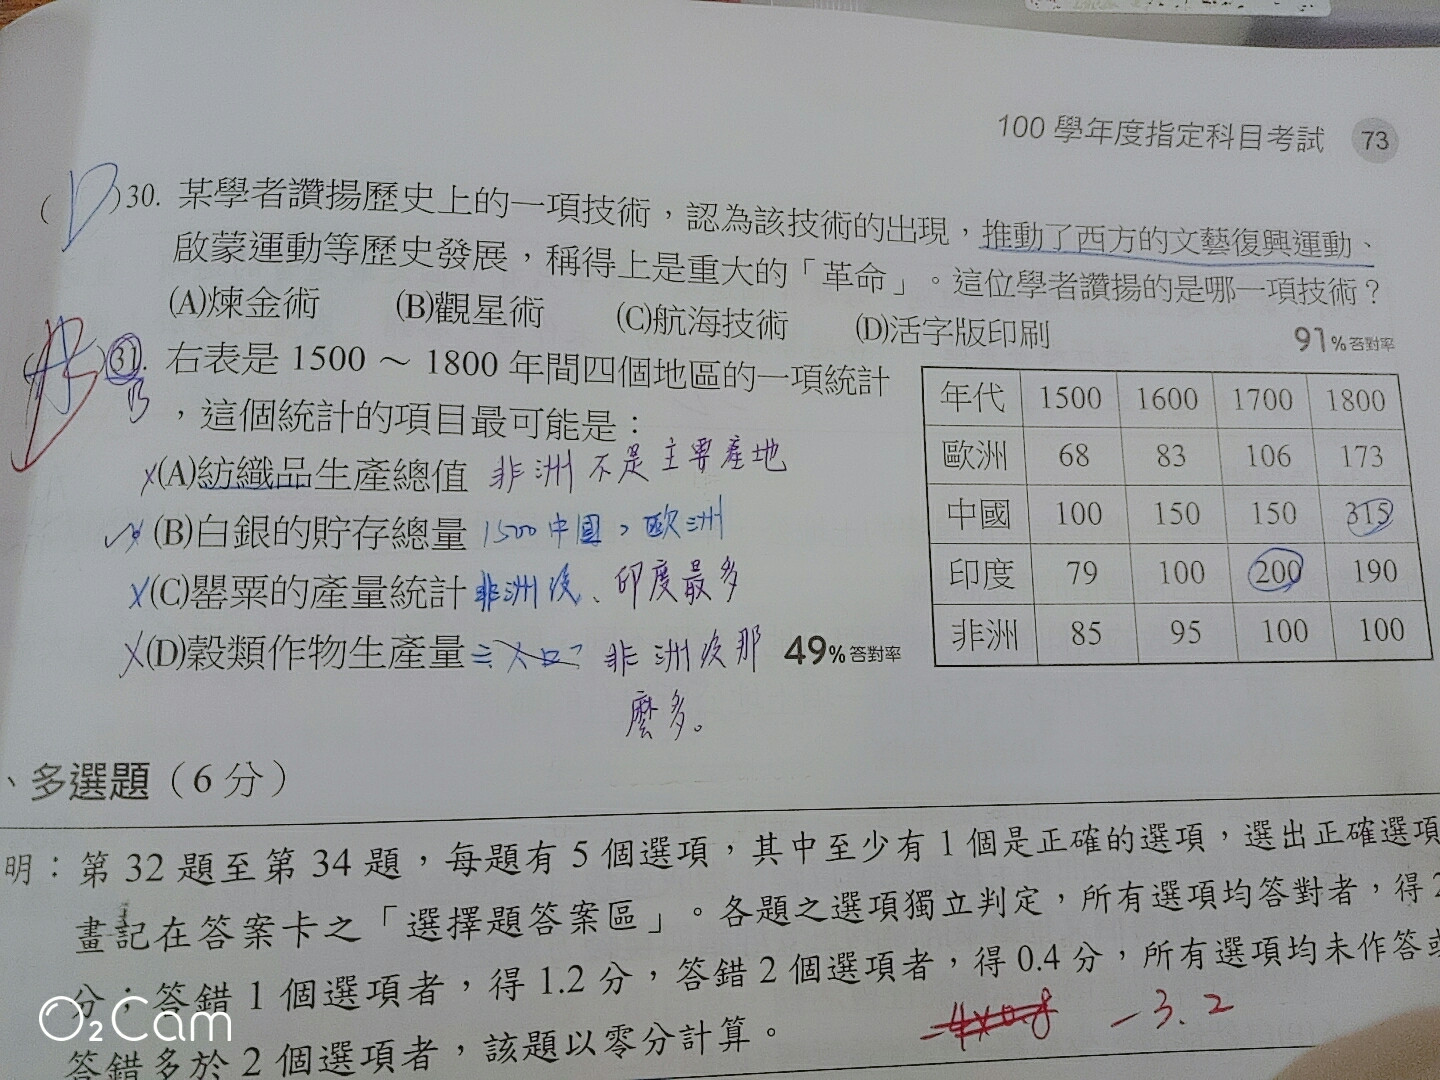 100 學年度指定科目考試 73
( D )30. 某學者讚揚歷史上的一項技術，認為該技術的出現，推動了西方的文藝復興運動、
啟蒙運動等歷史發展，稱得上是重大的「革命」。這位學者讚揚的是哪一項技術？
(A)煉金術 (B)觀星術 (C)航海技術 (D)活字版印刷 91%答對率
31. 右表是 1500 ～ 1800 年間四個地區的一項統計
B ，這個統計的項目最可能是：
(A)紡織品生產總值 非洲不是主要產地
(B)白銀的貯存總量 1500中國＞歐洲
(C)罌粟的產量統計 非洲沒、印度最多
(D)穀類作物生產量 非洲沒那 49%答對率
麼多。
年代 1500 1600 1700 1800
歐洲 68 83 106 173
中國 100 150 150 315
印度 79 100 200 190
非洲 85 95 100 100
、多選題（6 分）
明：第 32 題至第 34 題，每題有 5 個選項，其中至少有 1 個是正確的選項，選出正確選項
畫記在答案卡之「選擇題答案區」。各題之選項獨立判定，所有選項均答對者，得 2
分；答錯 1 個選項者，得 1.2 分，答錯 2 個選項者，得 0.4 分，所有選項均未作答或
答錯多於 2 個選項者，該題以零分計算。
-4x0.8 -3.2
O2Cam